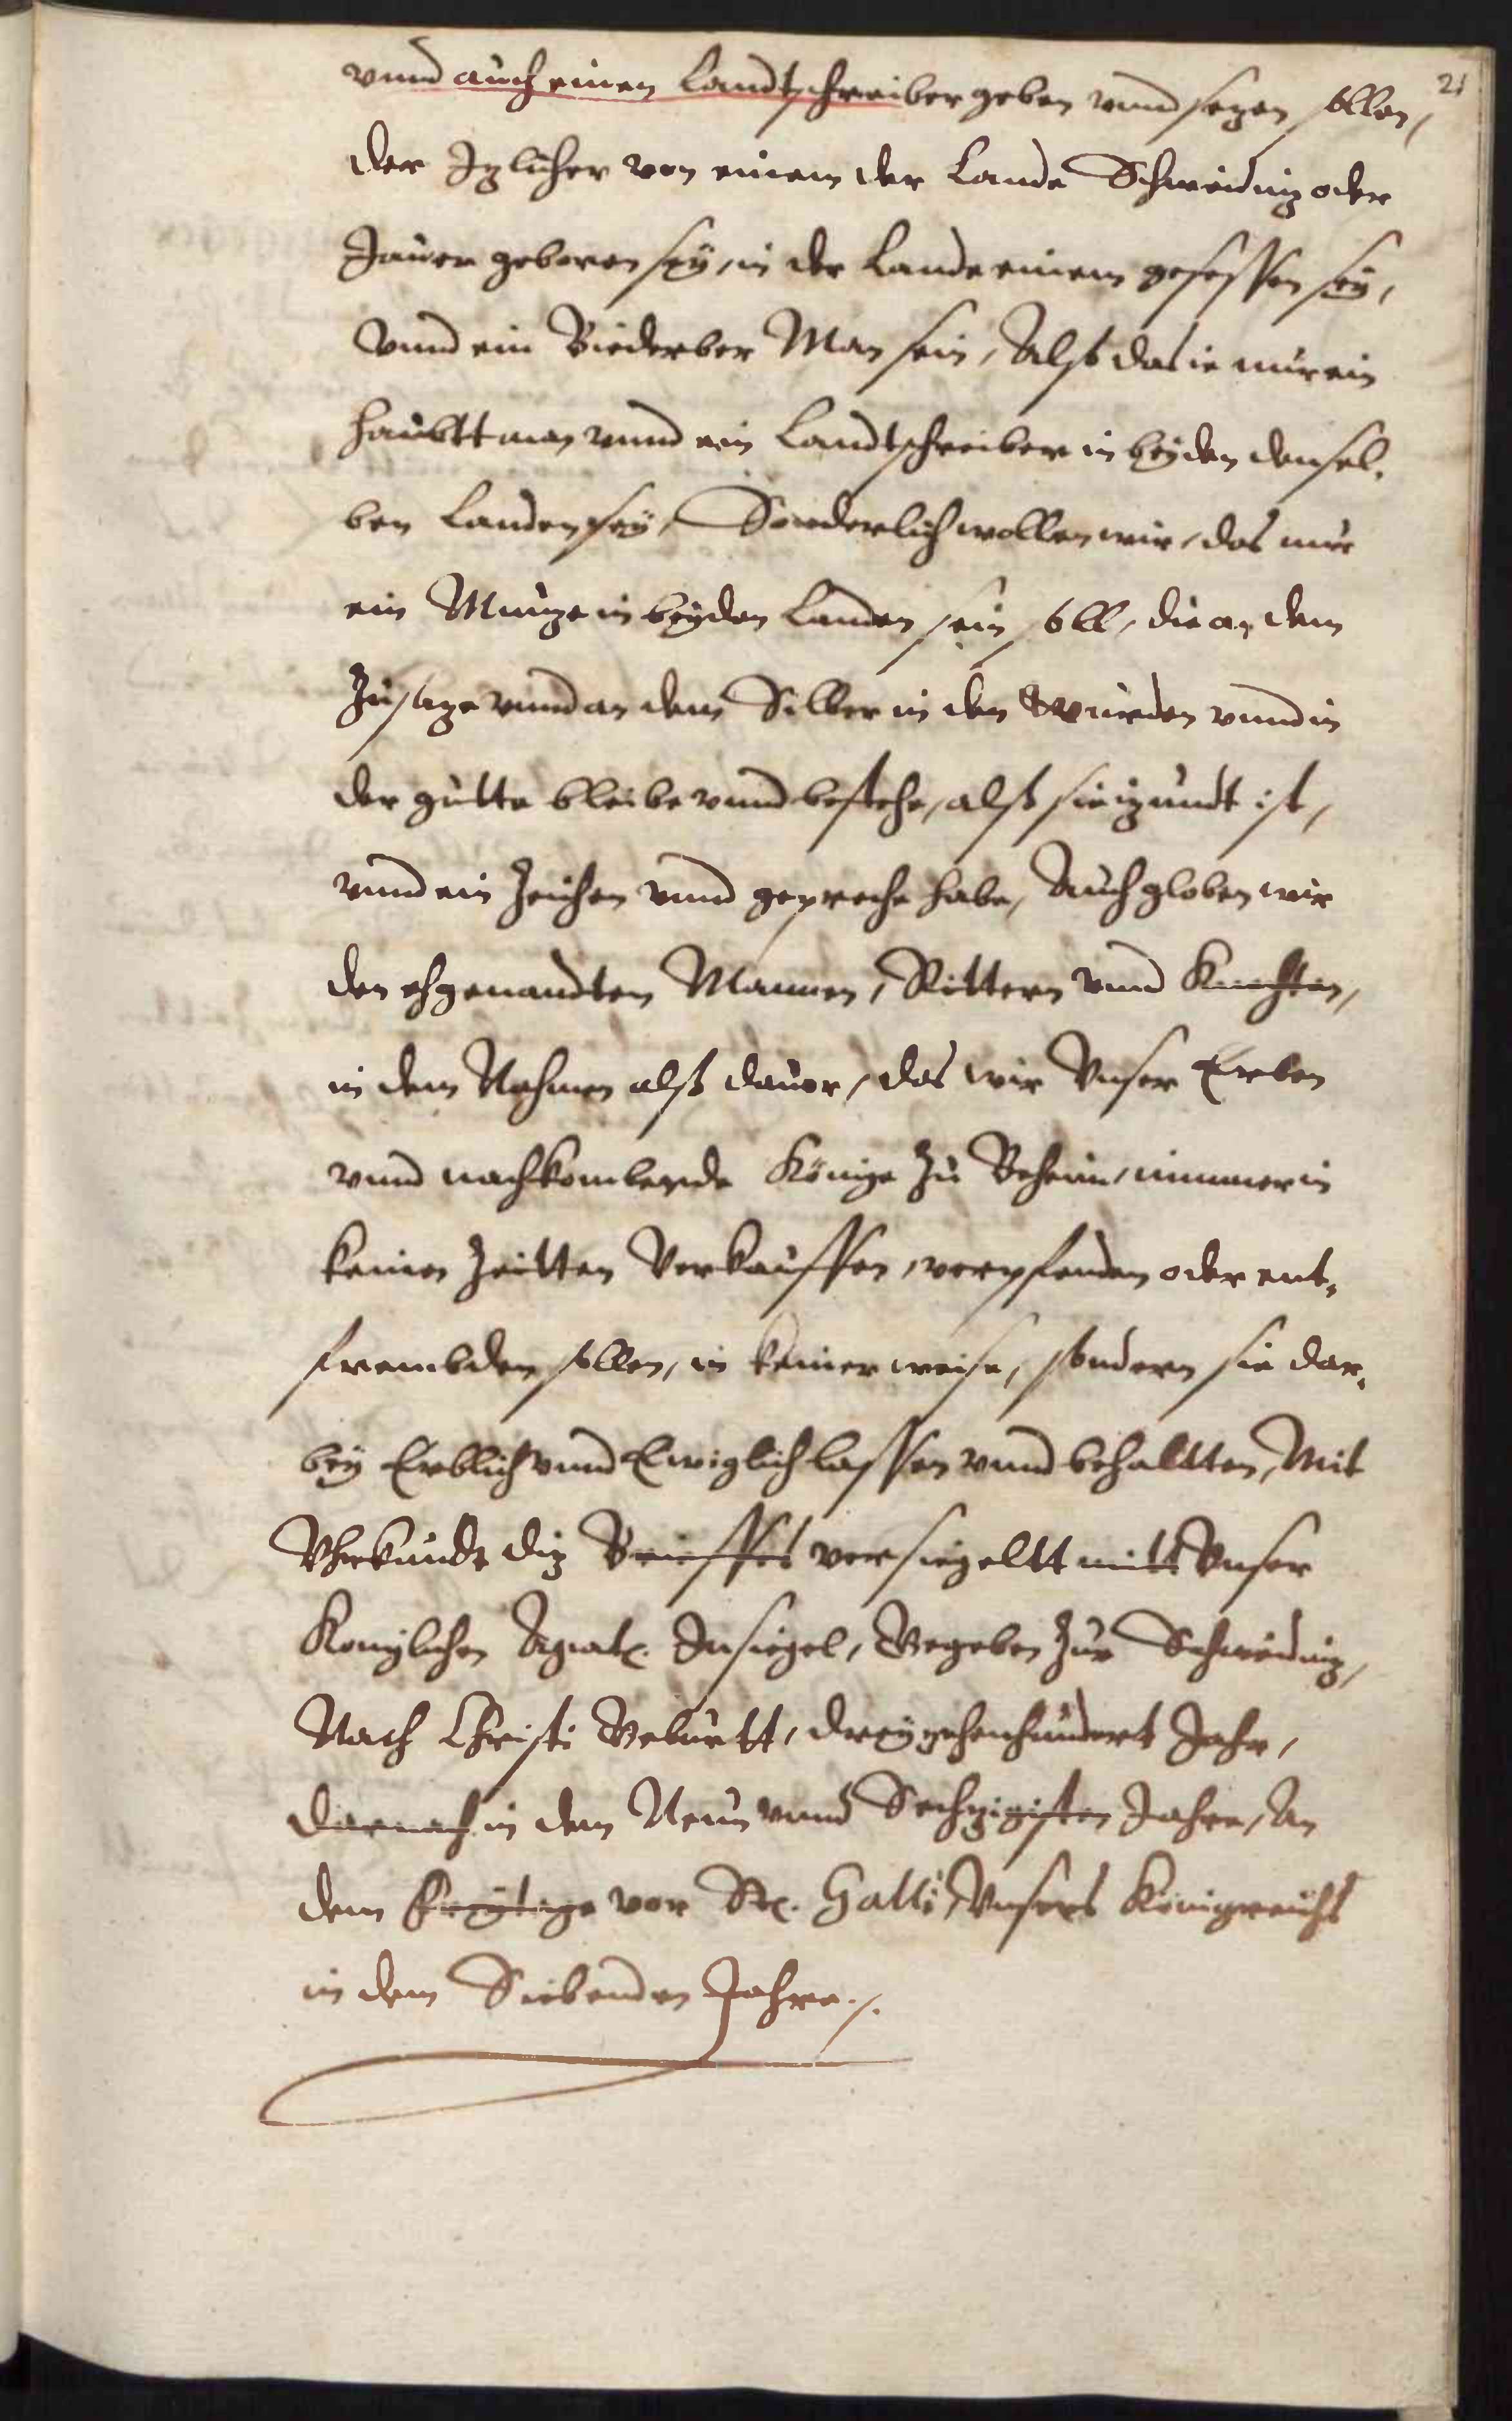 21
vnnd auch einen Landtschreiber geben vnnd sezen sollen,
der Izlicher von einem der Lande Schweidniz oder
Jauer geboren seÿ, in der Lande einem gesessen seÿ,
Vnnd ein Biederber Man sein, Also das ie nur ein
Haubttman vnnd ein Landtschreiber in beÿden densel,
ben Landen seÿ, Sonderlich wollen wir, das nur
ein Munze in beÿden Landen sein soll, die an dem
Zusaze vnnd an dem Silber in den Wurden vnnd in
der gutte bleibe vnnd bestehe, alß sie izundt ist,
vnnd ein Zeichen vnnd gepreche habe, Auch globen wir
den ehgenandten Mannen, Rittern vnnd Knechten,
in dem Nahmen alß dauor, das wir Vnser Erben
vnnd nachkombende Könige zu Beheim, nimmer in
keinen Zeitten Verkauffen, verpfenden oder ent,
frembden sollen, in keiner weise, sondern sie dar,
beÿ Erblich vnnd Ewiglich lassen vnnd behaltten, Mit
Vhrkunde diz Brieffes versiegeltt mitt Vnser
Koniglichen Insiegel, Gegeben zur Schweidniz,
Nach Christi Geburtt, dreÿzehenhundert Jahr,
darnach in dem Neun vnnd Sechzigisten Jahre, An
dem Freÿtage vor St. Galli, Vnsers Königreichs
in dem Siebenden Jahre.